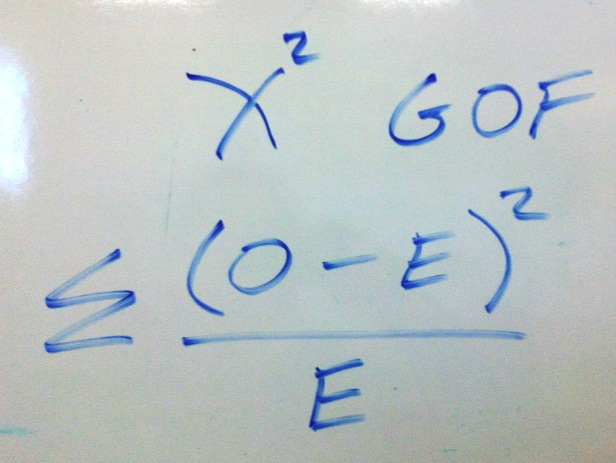 χ² GOF
Σ (O - E)²
E